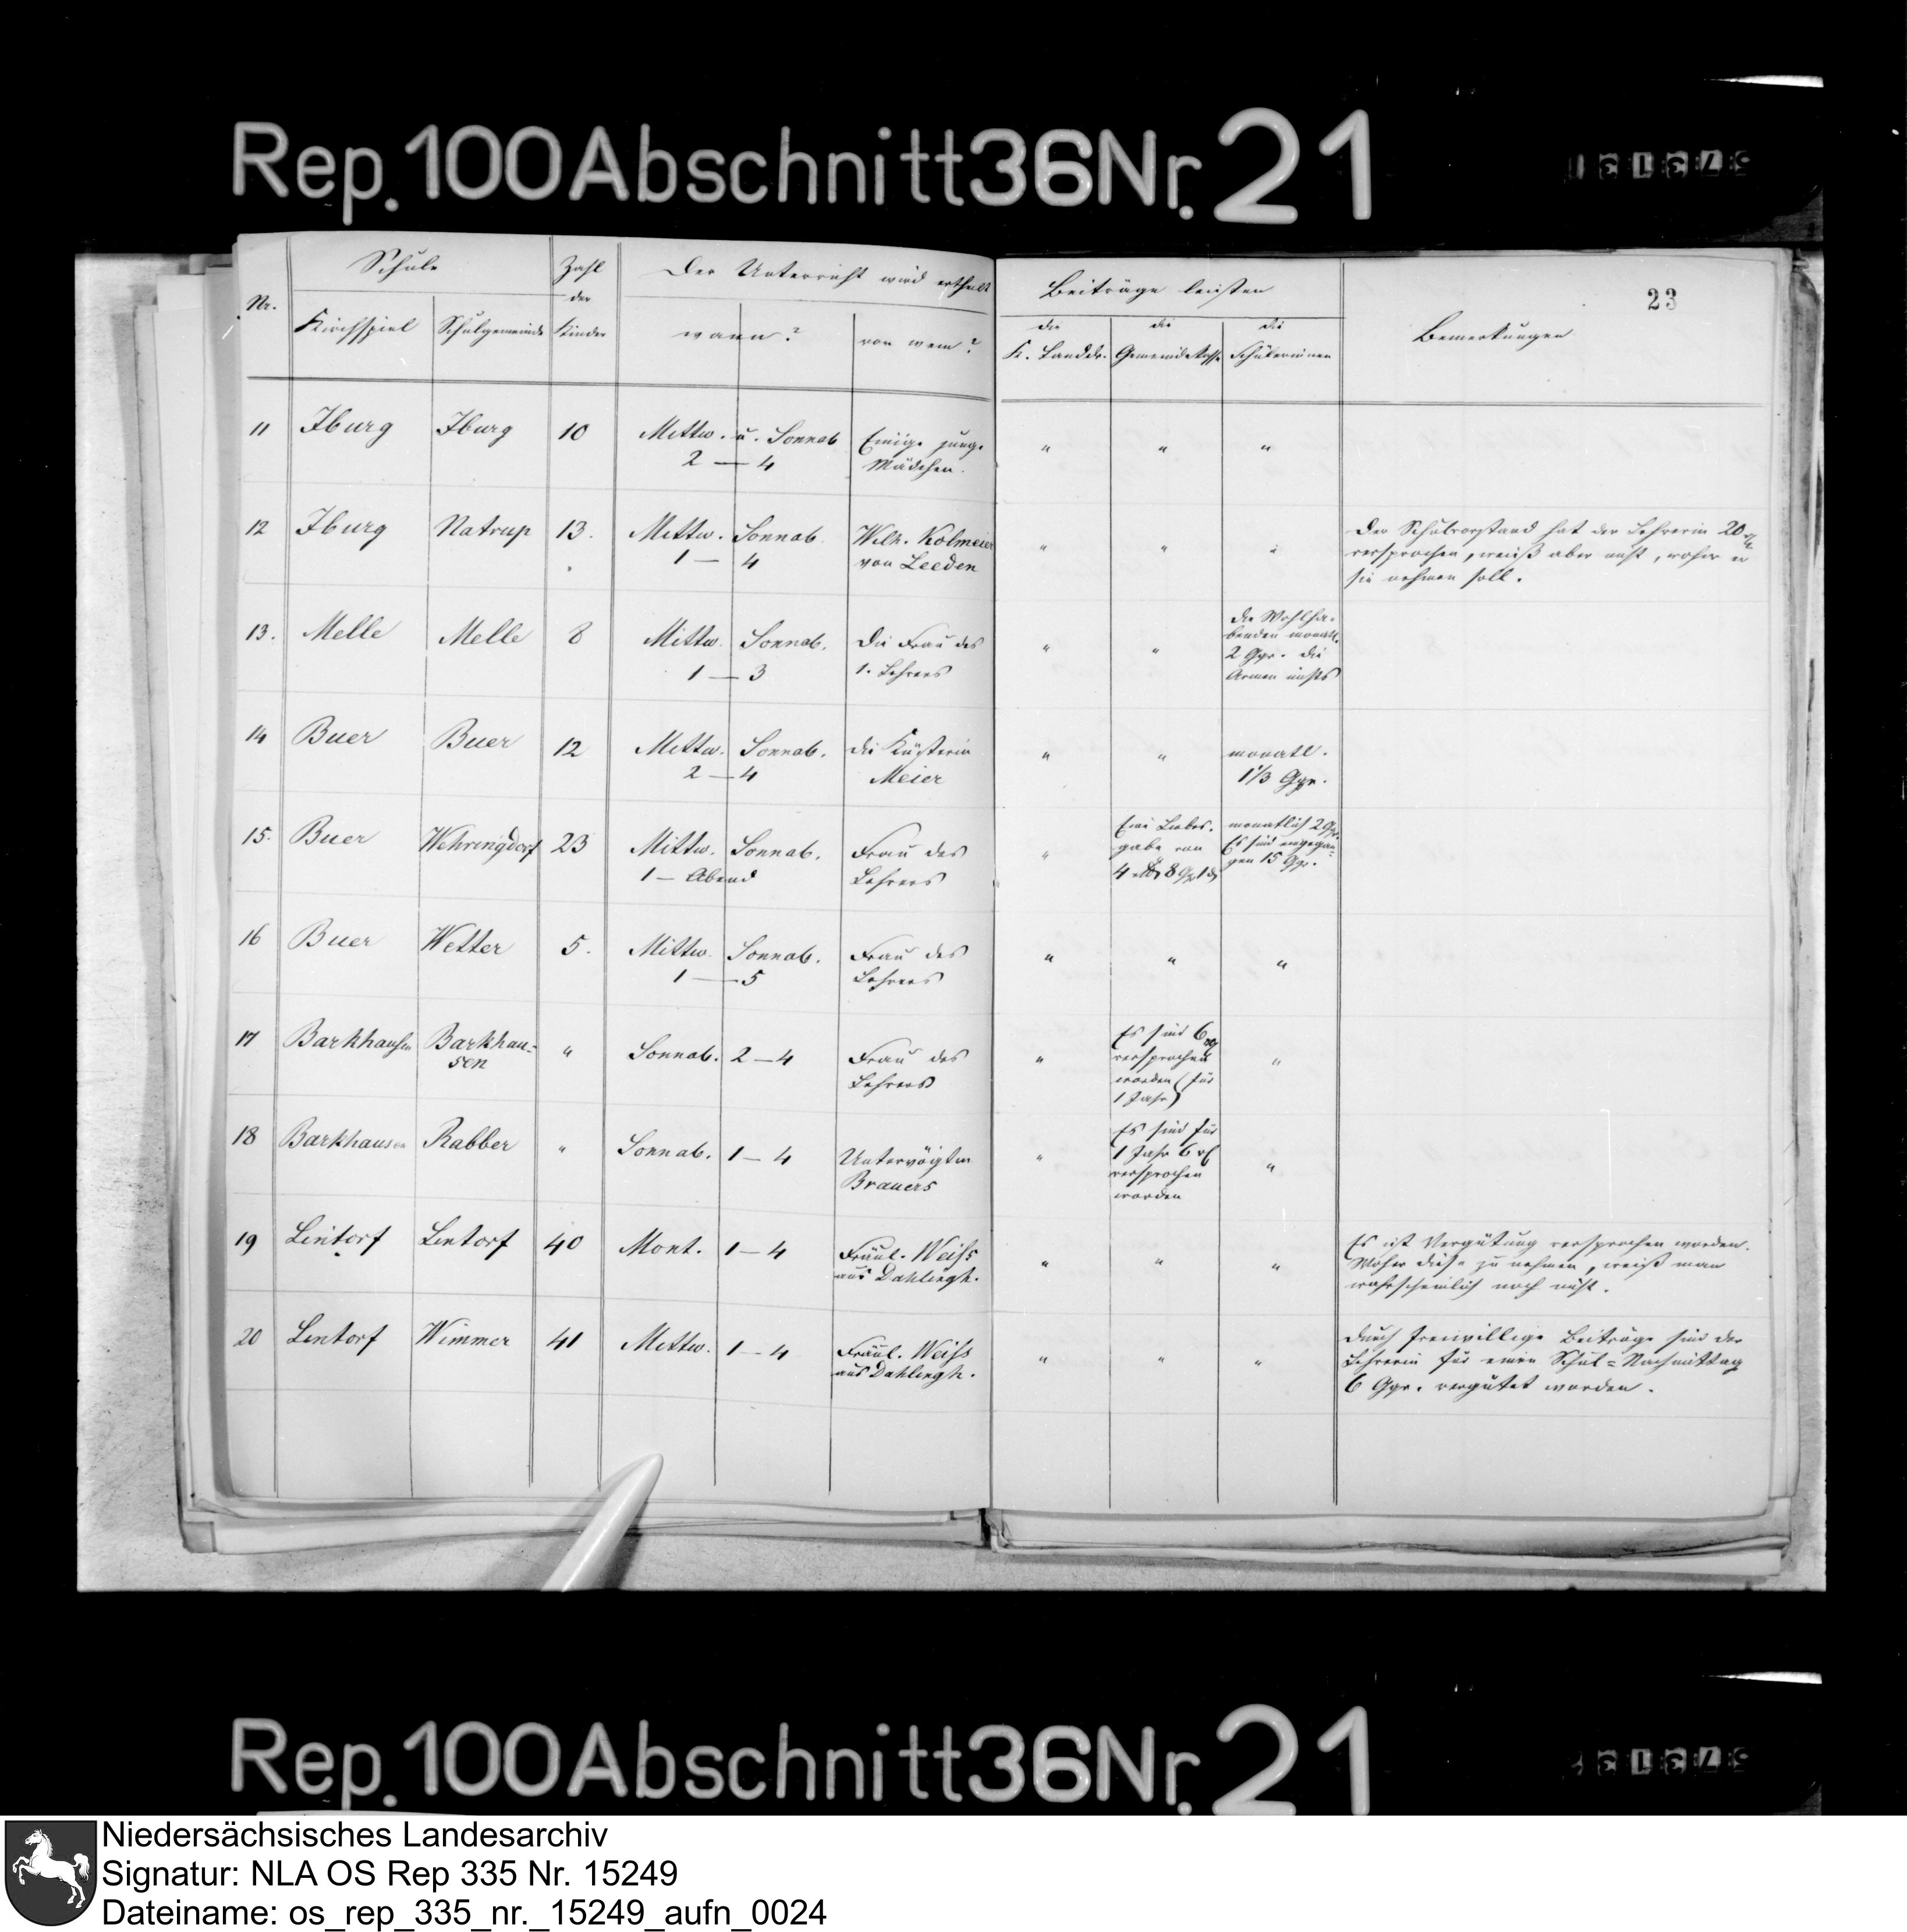 Rep. 100 Abschnitt 36 Nr. 21
23
Nr. Schule Zahl der Kinder Der Unterricht wird ertheilt Beiträge leisten Bemerkungen
Kirchspiel Schulgemeinde wann? von wem? die K. Landdr. die Gemeindekasse die Schülerinnen
11 Iburg Iburg 10 Mittw. u. Sonnab Einige junge " " "
2 — 4 Mädchen.
12 Iburg Natrup 13. Mittw. Sonnab. Wilh. Kolmeier " " " Der Schulvorstand hat der Lehrerin 20
1 — 4 von Leeden versprochen, weiß aber nicht, woher er
sie nehmen soll.
13. Melle Melle 8 Mittw. Sonnab. Die Frau des " " die Wohlha-
1 — 3 1. Lehrers benden monatl.
2 Ggr. die
Armen nichts
14 Buer Buer 12 Mittw. Sonnab. die Küsterin " " monatl.
2 — 4 Meier 1 1/3 Ggr.
15. Buer Wehringdorf 23 Mittw. Sonnab. Frau des " Eine Liebes- monatlich 2 Ggr.
1 — Abend Lehrers gabe von Es sind eingegan-
4 8 Ggr 1 gen 15 Ggr.
16 Buer Wetter 5. Mittw. Sonnab. Frau des " " "
1 — 5 Lehrers
17 Barkhausen Barkhau- " Sonnab. 2 — 4 Frau des " Es sind 6 "
sen Lehrers versprochen
worden (für
1 Jahr)
18 Barkhausen Rabber " Sonnab. 1 — 4 Untervögtin " Es sind für "
Brauers 1 Jahr 6
versprochen
worden
19 Lintorf Lintorf 40 Mont. 1 — 4 Fräul. Weiss " " " Es ist Vergütung versprochen worden.
aus Dahlingh. Woher diese zu nehmen, weiß man
wahrscheinlich noch nicht.
20 Lintorf Wimmer 41 Mittw. 1 — 4 Fräul. Weiss " " " Durch freiwillige Beiträge sind der
aus Dahlingh. Lehrerin für einen Schul-Nachmittag
6 Ggr. vergütet worden.
Rep. 100 Abschnitt 36 Nr. 21
Niedersächsisches Landesarchiv
Signatur: NLA OS Rep 335 Nr. 15249
Dateiname: os_rep_335_nr._15249_aufn_0024